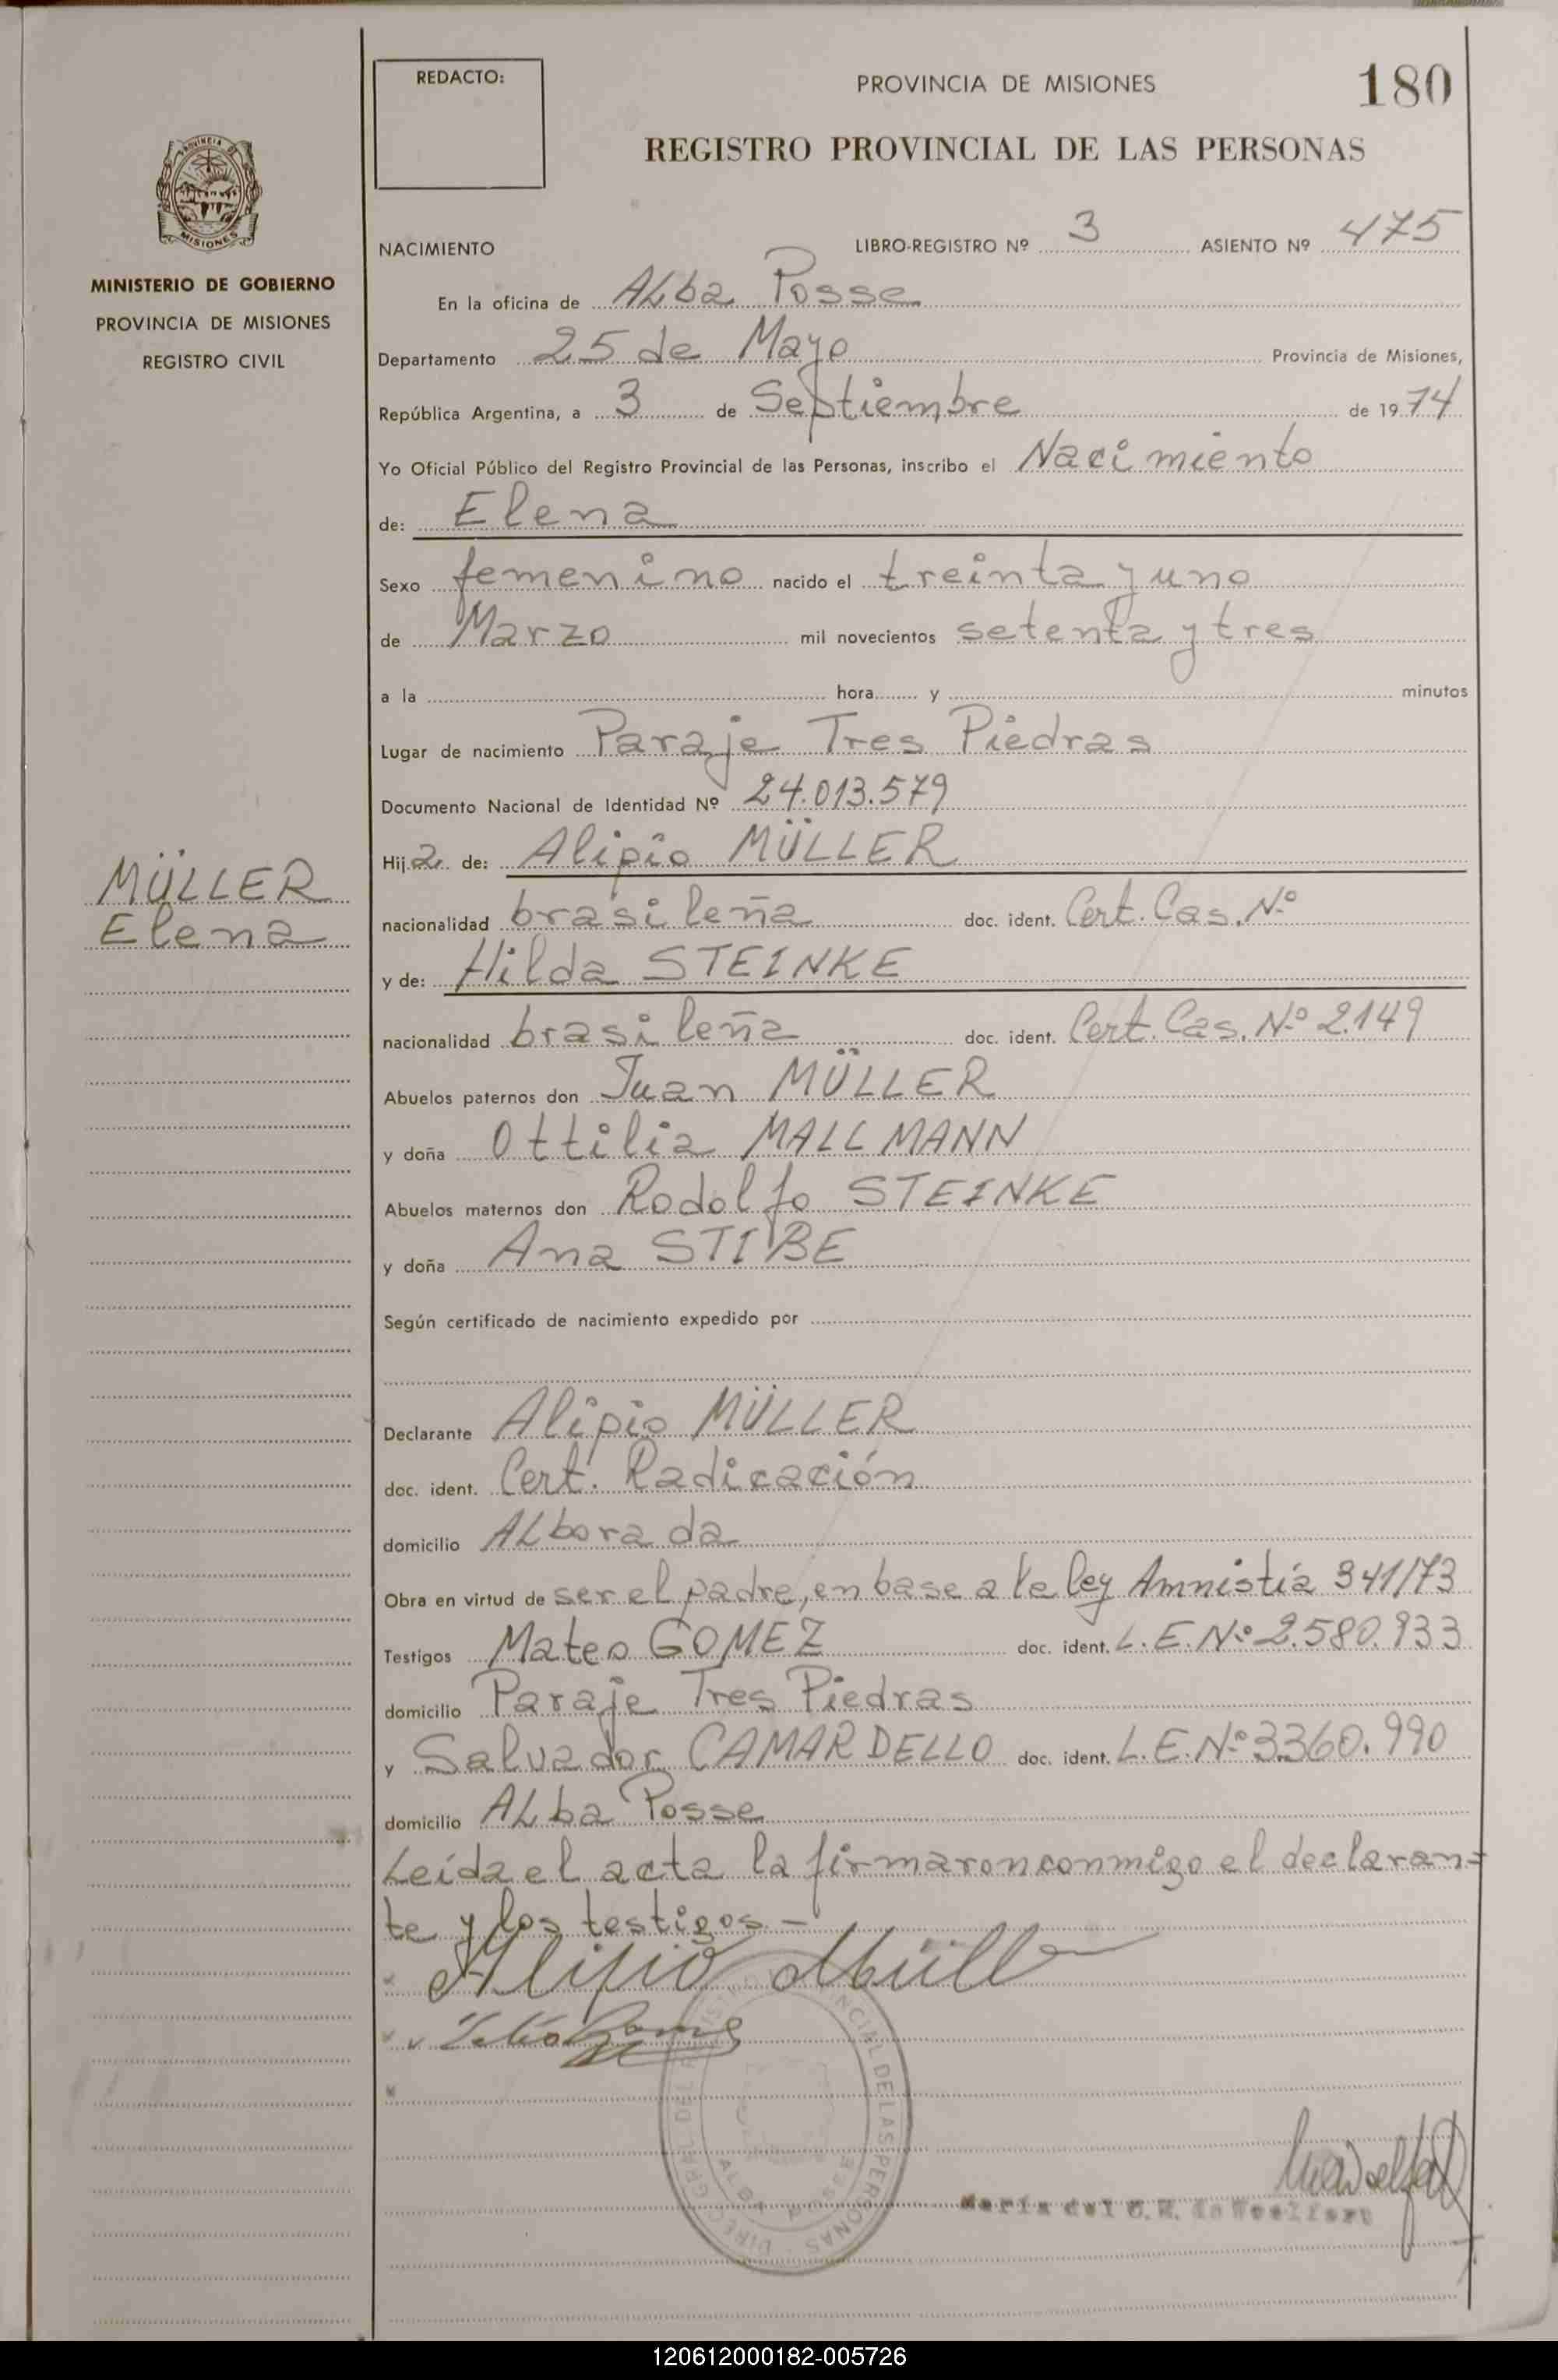 REDACTO:
PROVINCIA DE MISIONES
180
REGISTRO PROVINCIAL DE LAS PERSONAS
PROVINCIA DE
MISIONES
MINISTERIO DE GOBIERNO
PROVINCIA DE MISIONES
REGISTRO CIVIL
NACIMIENTO LIBRO-REGISTRO Nº 3 ASIENTO Nº 475
En la oficina de ALba Posse
Departamento 25 de Mayo Provincia de Misiones,
República Argentina, a 3 de Septiembre de 1974
Yo Oficial Público del Registro Provincial de las Personas, inscribo el Nacimiento
de: Elena
Sexo femenino nacido el treinta y uno
de Marzo mil novecientos setenta y tres
a la hora y minutos
Lugar de nacimiento Paraje Tres Piedras
Documento Nacional de Identidad Nº 24.013.579
Hija de: Alipio MÜLLER
MÜLLER
Elena
nacionalidad brasileña doc. ident. Cert. Cas. Nº
y de: Hilda STEINKE
nacionalidad brasileña doc. ident. Cert. Cas. Nº 2.149
Abuelos paternos don Juan MÜLLER
y doña Ottilia MALLMANN
Abuelos maternos don Rodolfo STEINKE
y doña Ana STIBE
Según certificado de nacimiento expedido por
Declarante Alipio MÜLLER
doc. ident. Cert. Radicación
domicilio ALborada
Obra en virtud de ser el padre, en base a la ley Amnistía 341/73
Testigos Mateo GOMEZ doc. ident. L.E. Nº 2.580.933
domicilio Paraje Tres Piedras
y Salvador CAMARDELLO doc. ident. L.E. Nº 3.360.990
domicilio ALba Posse
Leída el acta la firmaron conmigo el declaran=
te y los testigos.-
Alipio Müller
DIRECC. GRAL. DEL REGIS. PROVINCIAL DE LAS PERSONAS
ALBA POSSE
María del C. R. de Woelfert
120612000182-005726